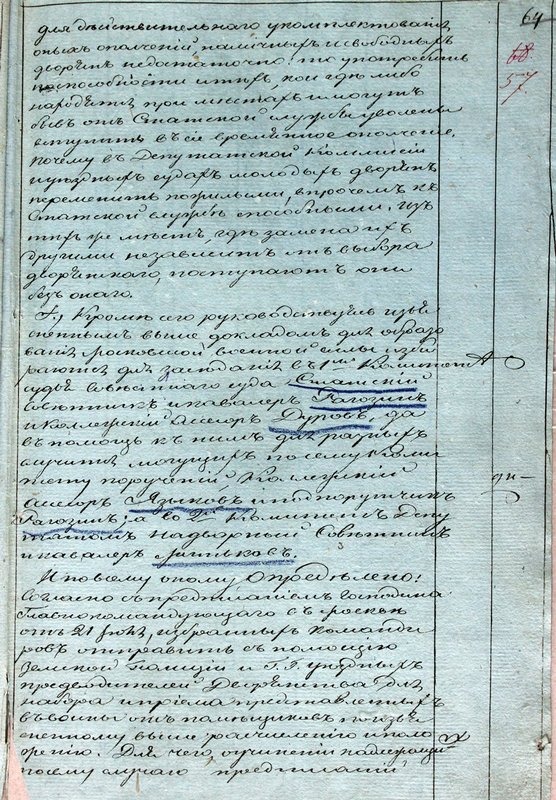 64
60
57
для дѣйствительнаго укомплектованія
оныхъ ополченій, наличныхъ и свободныхъ
дворянъ недостаточно: то употребить
по способности и тѣхъ, кои гдѣ либо
находятся при мѣстахъ и могутъ
бывъ отъ Статской службы уволены
вступить въ сіе временное ополченіе.
почему въ Депутатской Коммисіи
и уѣздныхъ судахъ молодыхъ дворянъ
перемѣнить пожилыми, впрочемъ къ
Статской службѣ способными. изъ
тѣхъ же мѣстъ, гдѣ замена ихъ
другими независитъ отъ выбора
дворянскаго, поступаютъ они
безъ онаго.
Кромѣ сего руководствуясь изъя
сненнымъ выше докладомъ для образо
ванія Московской военной силы избй
раются для засѣданія въ 1й Комитетъ
судья Совѣстнаго суда Статскій
совѣтникъ и кавалеръ Рагозинъ
и Коллежскій Ассесоръ Дуровъ, да
въ помощь къ нимъ для разныхъ
случится могущихъ по сему Коми
тету порученій Коллежскій
Ассесоръ Языковъ и подпорутчикъ
Рагозинъ; а во 2й Комитетъ Депу
татомъ Надворный Совѣтникъ
и кавалеръ Митьковъ.
И по всему оному Опредѣлено:
Согласно съ предписаніемъ Господина
Главнокомандующаго въ Москвѣ
отъ 21 Іюля, избранныхъ Команди
ровъ отправить съ помощію
Земской Полиціи и Г.г. уѣздныхъ
предводителей Дворянства для
набора и пріема представленныхъ
въ воины отъ помѣщиковъ по изъя
сненному выше расчисленію и поло
женію. Для чего, о учиненіи надлежащи
по сему случаю предписаній